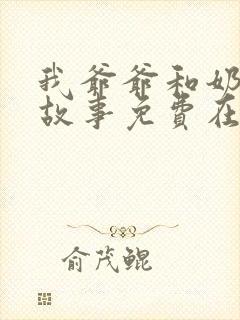 我爷爷和奶
故事免費在
俞茂鲲